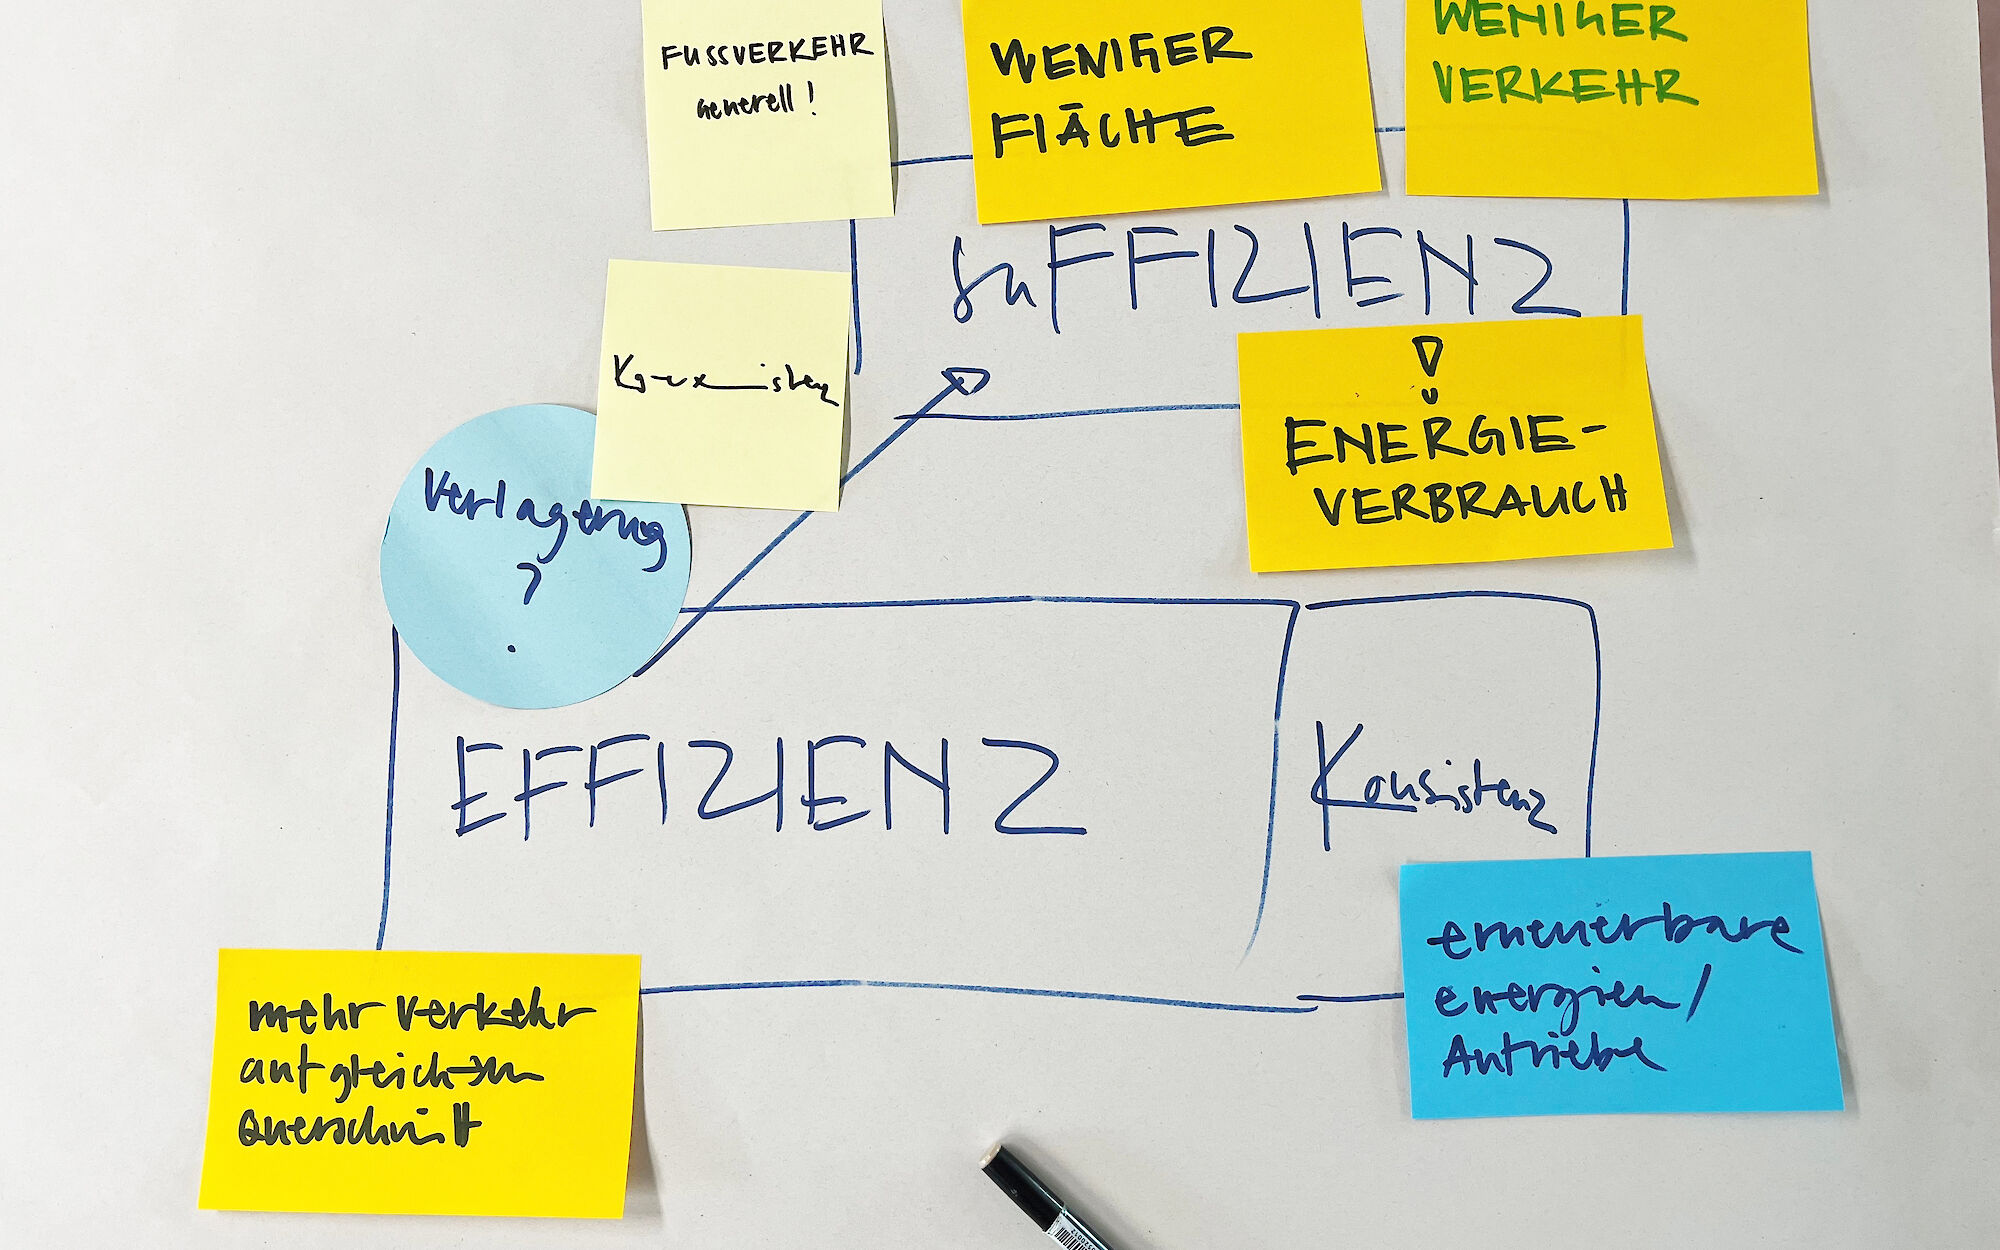 FUSSVERKEHR
generell!
WENIGER
FLÄCHE
WENIGER
VERKEHR
SUFFIZIENZ
Koexistenz
!
ENERGIE-
VERBRAUCH
Verlagerung
?
EFFIZIENZ
Konsistenz
mehr Verkehr
auf gleichem
Querschnitt
erneuerbare
energien/
Antriebe